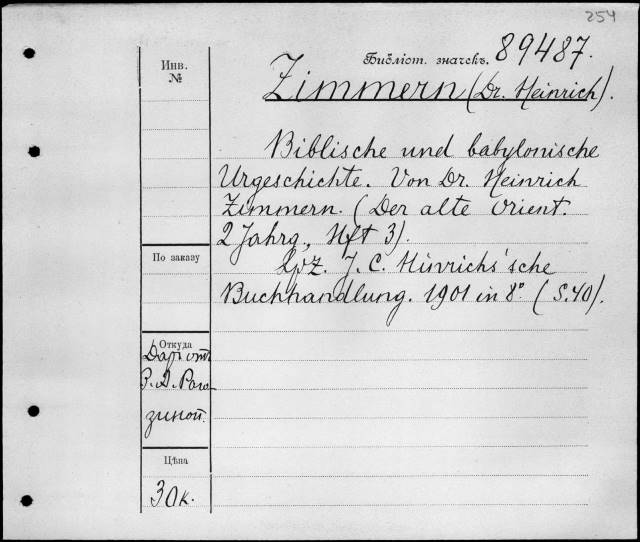 254
Библіот. значекъ. 89487.
Инв.
№
Zimmern (Dr. Heinrich).
Biblische und babylonische
Urgeschichte. Von Dr. Heinrich
Zimmern. (Der alte Orient.
2 Jahrg., Hft 3).
По заказу
Lpz. J. C. Hinrichs'sche
Buchhandlung. 1901 in 8° (S. 40).
Откуда
Даръ отъ
З. А. Раго-
зиной.
Цѣна
30 к.